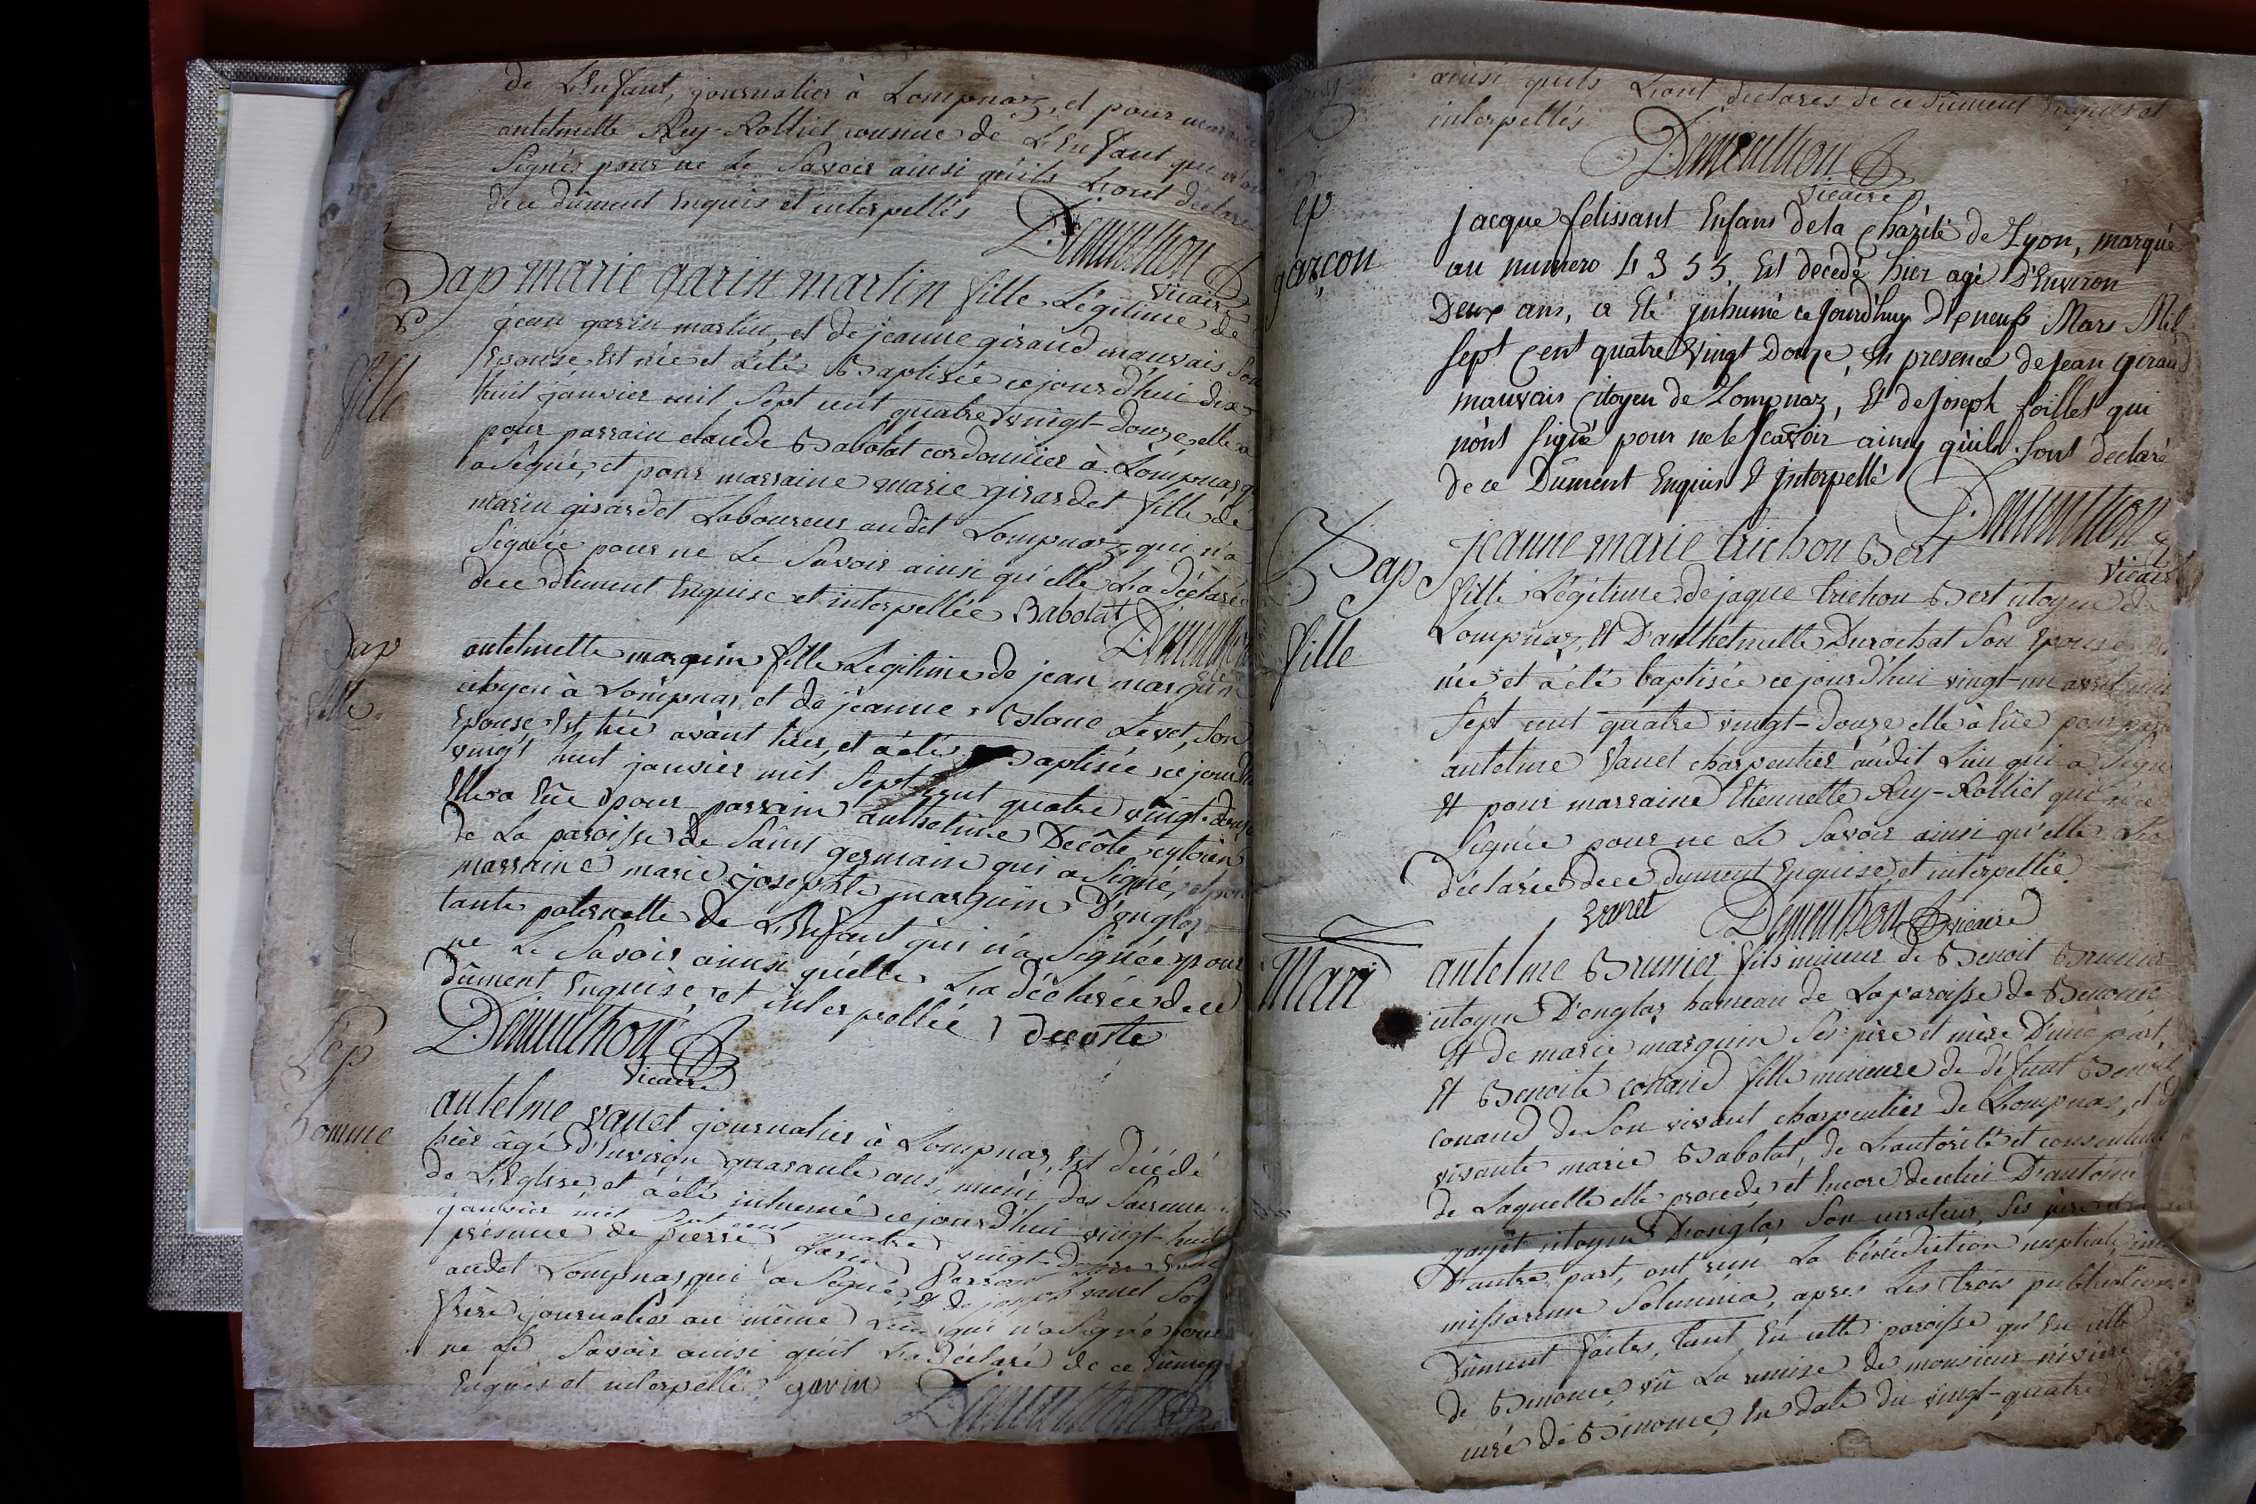 de L'enfant, journalier à Lompnaz, et pour
antelmette Rey-Rolliet cousine de L'enfant qui n'ont
Signés pour ne Le Savoir ainsi qu'ils L'ont déclaré
de ce dûment Enquis et interpellés
Demeuthon
Vicaire
Bap marie garin martin fille Légitime de
fille
jean garin martin, et de jeanne giraud mauvais Son
Epouse Est née et àété Baptisée cejourd'hui dix-
huit janvier mil Sept cent quatre vingt-douze elle a
pour parrain claude Babolat cordonnier à Lompnas qui
a Signé, et pour marraine marie girardet fille de
marin girardet Laboureur audit Lompnaz, qui n'a
Signée pour ne Le Savoir ainsi qu'elle L'a déclarée
de ce dûment Enquise et interpellée Babolat
Demeuthon
Bap
fille
antelmette marquin fille Légitime de jean marquin
citoyen à Lompnas, et de jeanne Blanc Levet, Son
Epouse Est née avant hier, et àété Baptisée ce jourd'hui
vingt huit janvier mil Sept cent quatre vingt-douze
Elle a Eûe pour parrain anthelme Decôte cytoien
de La paroisse de Saint germain qui a Signé, et pour
marraine marie josephte marquin D'onglas
tante paternelle de L'Enfant qui n'a Signée pour
ne Le Savoir ainsi qu'elle L'a déclarée de ce
dûment Enquise, et interpellée decoste
Demeuthon
Vicaire
Sep
homme
antelme vanet journalier à Lompnas, Est décédé
hièr âgé d'Environ quarante ans, muni des Sacremens
de L'Eglise et àété inhumé cejourd'hui vingt-huit
janvier mil Sept cent quatre vingt-douze En
présence de pierre garin
audit Lompnas qui a Signé, Et de joseph vanet Son
frère journalier au même Lieu qui n'a Signé pour
ne Le Savoir ainsi qu'il L'a déclaré de ce dûment
Enquis et interpellé garin
Demeuthon
ainsi qu'ils L'ont déclarés de ce dûment Enquis et
interpellés
Demeuthon
Vicaire
Sep
garçon
Jacque felissant Enfans de la Charité de Lyon, marqué
au numero 4355, Est decedé hier agé D'Environ
Deux ans, a Eté inhumé ce Jourd'huy Dixneuf Mars Mil
Sept Cent quatre Vingt Douze, En presence de Jean giraud
mauvais Citoyen de Lompnaz, Et de Joseph foillet qui
n'ont Signé pour ne le Scavoir ainsy qu'ils l'ont declaré
de ce Dûment Enquis & Interpellé
Demeuthon
Vicaire
Bap
fille
jeanne marie trichon Bert
fille Légitime de jaque trichon Bert citoyen de
Lompnaz, Et D'anthelmette Durochat Son Epouse Est
née et àété baptisée cejourd'hui vingt-un avril mil
Sept cent quatre vingt-douze, elle à Eûe pour
antelme Vanet charpentier audit Lieu qui a Signé
Et pour marraine Etiennette Rey-Rolliet qui n'a
Signée pour ne Le Savoir ainsi qu'elle L'a
déclarée de ce dument Enquise et interpellée
vanet
Demeuthon vicaire
Mari
antelme Brunier fils mineur de Benoit Brunier
citoyen D'onglas hameau de La paroisse de Benonce
Et de marie marquin Ses père et mère D'une part,
Et Benoite conand fille mineure de défunt Benoit
conand de Son vivant charpentier de Lompnas, et de
vivante marie Babolat, de L'autorité et consentement
de Laquelle elle procede, et Encore de celui D'antoine
gayet citoyen D'onglas Son curateur, Ses père et mère
D'autre part, ont reçu La bénédiction nuptiale inter
missarum Solemnia, apres Les trois publications
Dûment faites, tant En cette paroisse qu'En celle
de Benonce, vû La remise de monsieur
curé de Benonce, En date du vingt-quatre